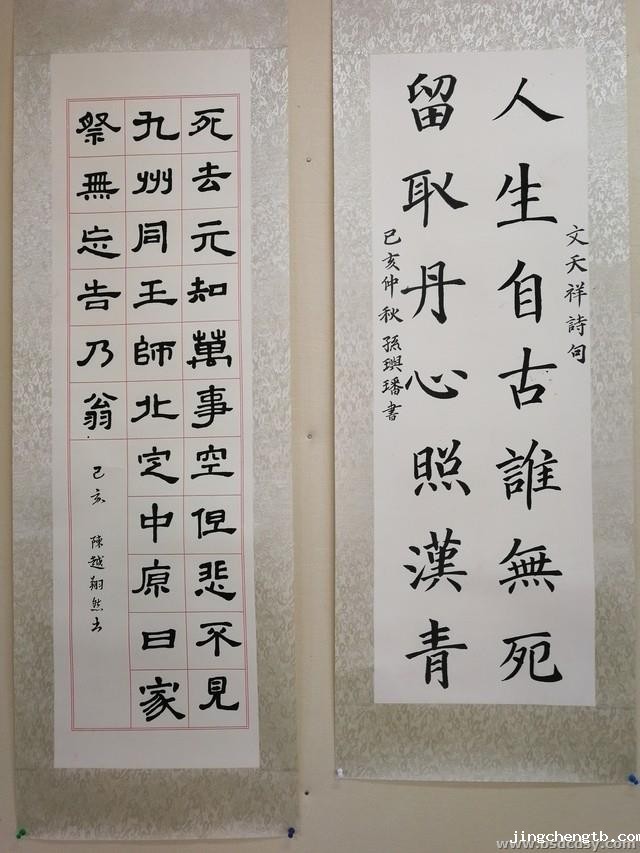 死去元知萬事空但悲不見
九州同王師北定中原日家
祭無忘告乃翁
己亥 陳越翔然书
文天祥詩句
人生自古誰無死
留取丹心照漢青
己亥仲秋 孫璵璠書
jingchengtb.com
www.bsdcdsy.com